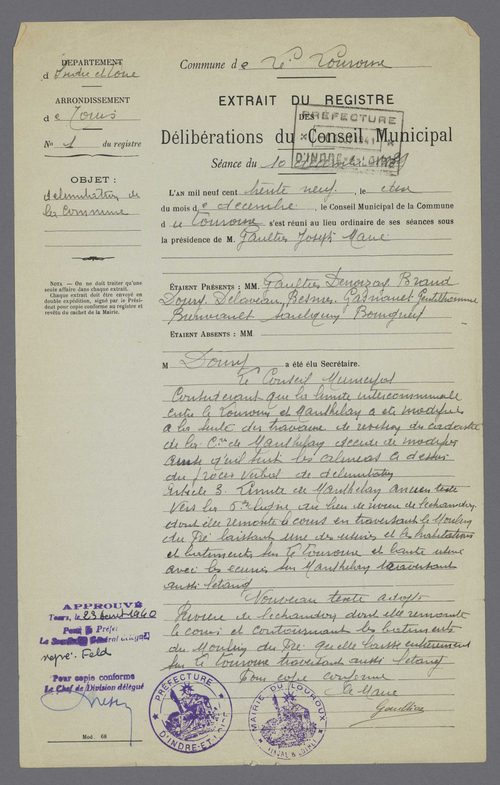 DÉPARTEMENT
d Indre et Loire
ARRONDISSEMENT
d e Tours
No 1 du registre
OBJET :
délimitation de
la Commune
NOTA. — On ne doit traiter qu'une
seule affaire dans chaque extrait.
Chaque extrait doit être envoyé en
double expédition, signé par le Prési-
dent pour copie conforme au registre et
revêtu du cachet de la Mairie.
Commune de Le Louroux
EXTRAIT DU REGISTRE
DES
Délibérations du Conseil Municipal
PREFECTURE
D'INDRE-&-LOIRE
Séance du 10 décembre 1939
L'AN mil neuf cent trente neuf, le dix
du mois de décembre, le Conseil Municipal de la Commune
d u Louroux s'est réuni au lieu ordinaire de ses séances sous
la présidence de M. Gaultier Joseph Maire
ÉTAIENT PRÉSENTS : MM. Gaultier Braud
Doury Delaveau Besnier Gentilhomme
ÉTAIENT ABSENTS : MM
M Doury a été élu Secrétaire.
Le Conseil Municipal
Considérant que la limite intercommunale
entre le Louroux et Manthelan a été modifiée
à la suite des travaux de revision du cadastre
de la Cne de Manthelan décide de modifier
ainsi qu'il suit les alineas ci dessus
du procès verbal de délimitation
Article 3 Limite de Manthelan ancien texte
Vers la 5e ligne au lieu de
dont elle remonte le cours en traversant le Moulin
du Pré laissant une des usines et les habitations
et batiments sur le Louroux et l'autre usine
avec les écuries sur Manthelan traversant
aussi l'étang
Nouveau texte adopté
Rivière de l'échandon dont elle remonte
le cours et contournant les batiments
du Moulin du Pré qu'elle laisse entièrement
sur le Louroux traversant aussi l'étang
Pour copie conforme
Le Maire
Gaultier
APPROUVÉ
Tours, le 23 1940
Pour le Préfet
Le Secrétaire Général délégué,
signé: Feld
Pour copie conforme
Le Chef de Division délégué
PREFECTURE
D'INDRE-ET-LOIRE
MAIRIE DU LOUROUX
INDRE & LOIRE
Mod. 68